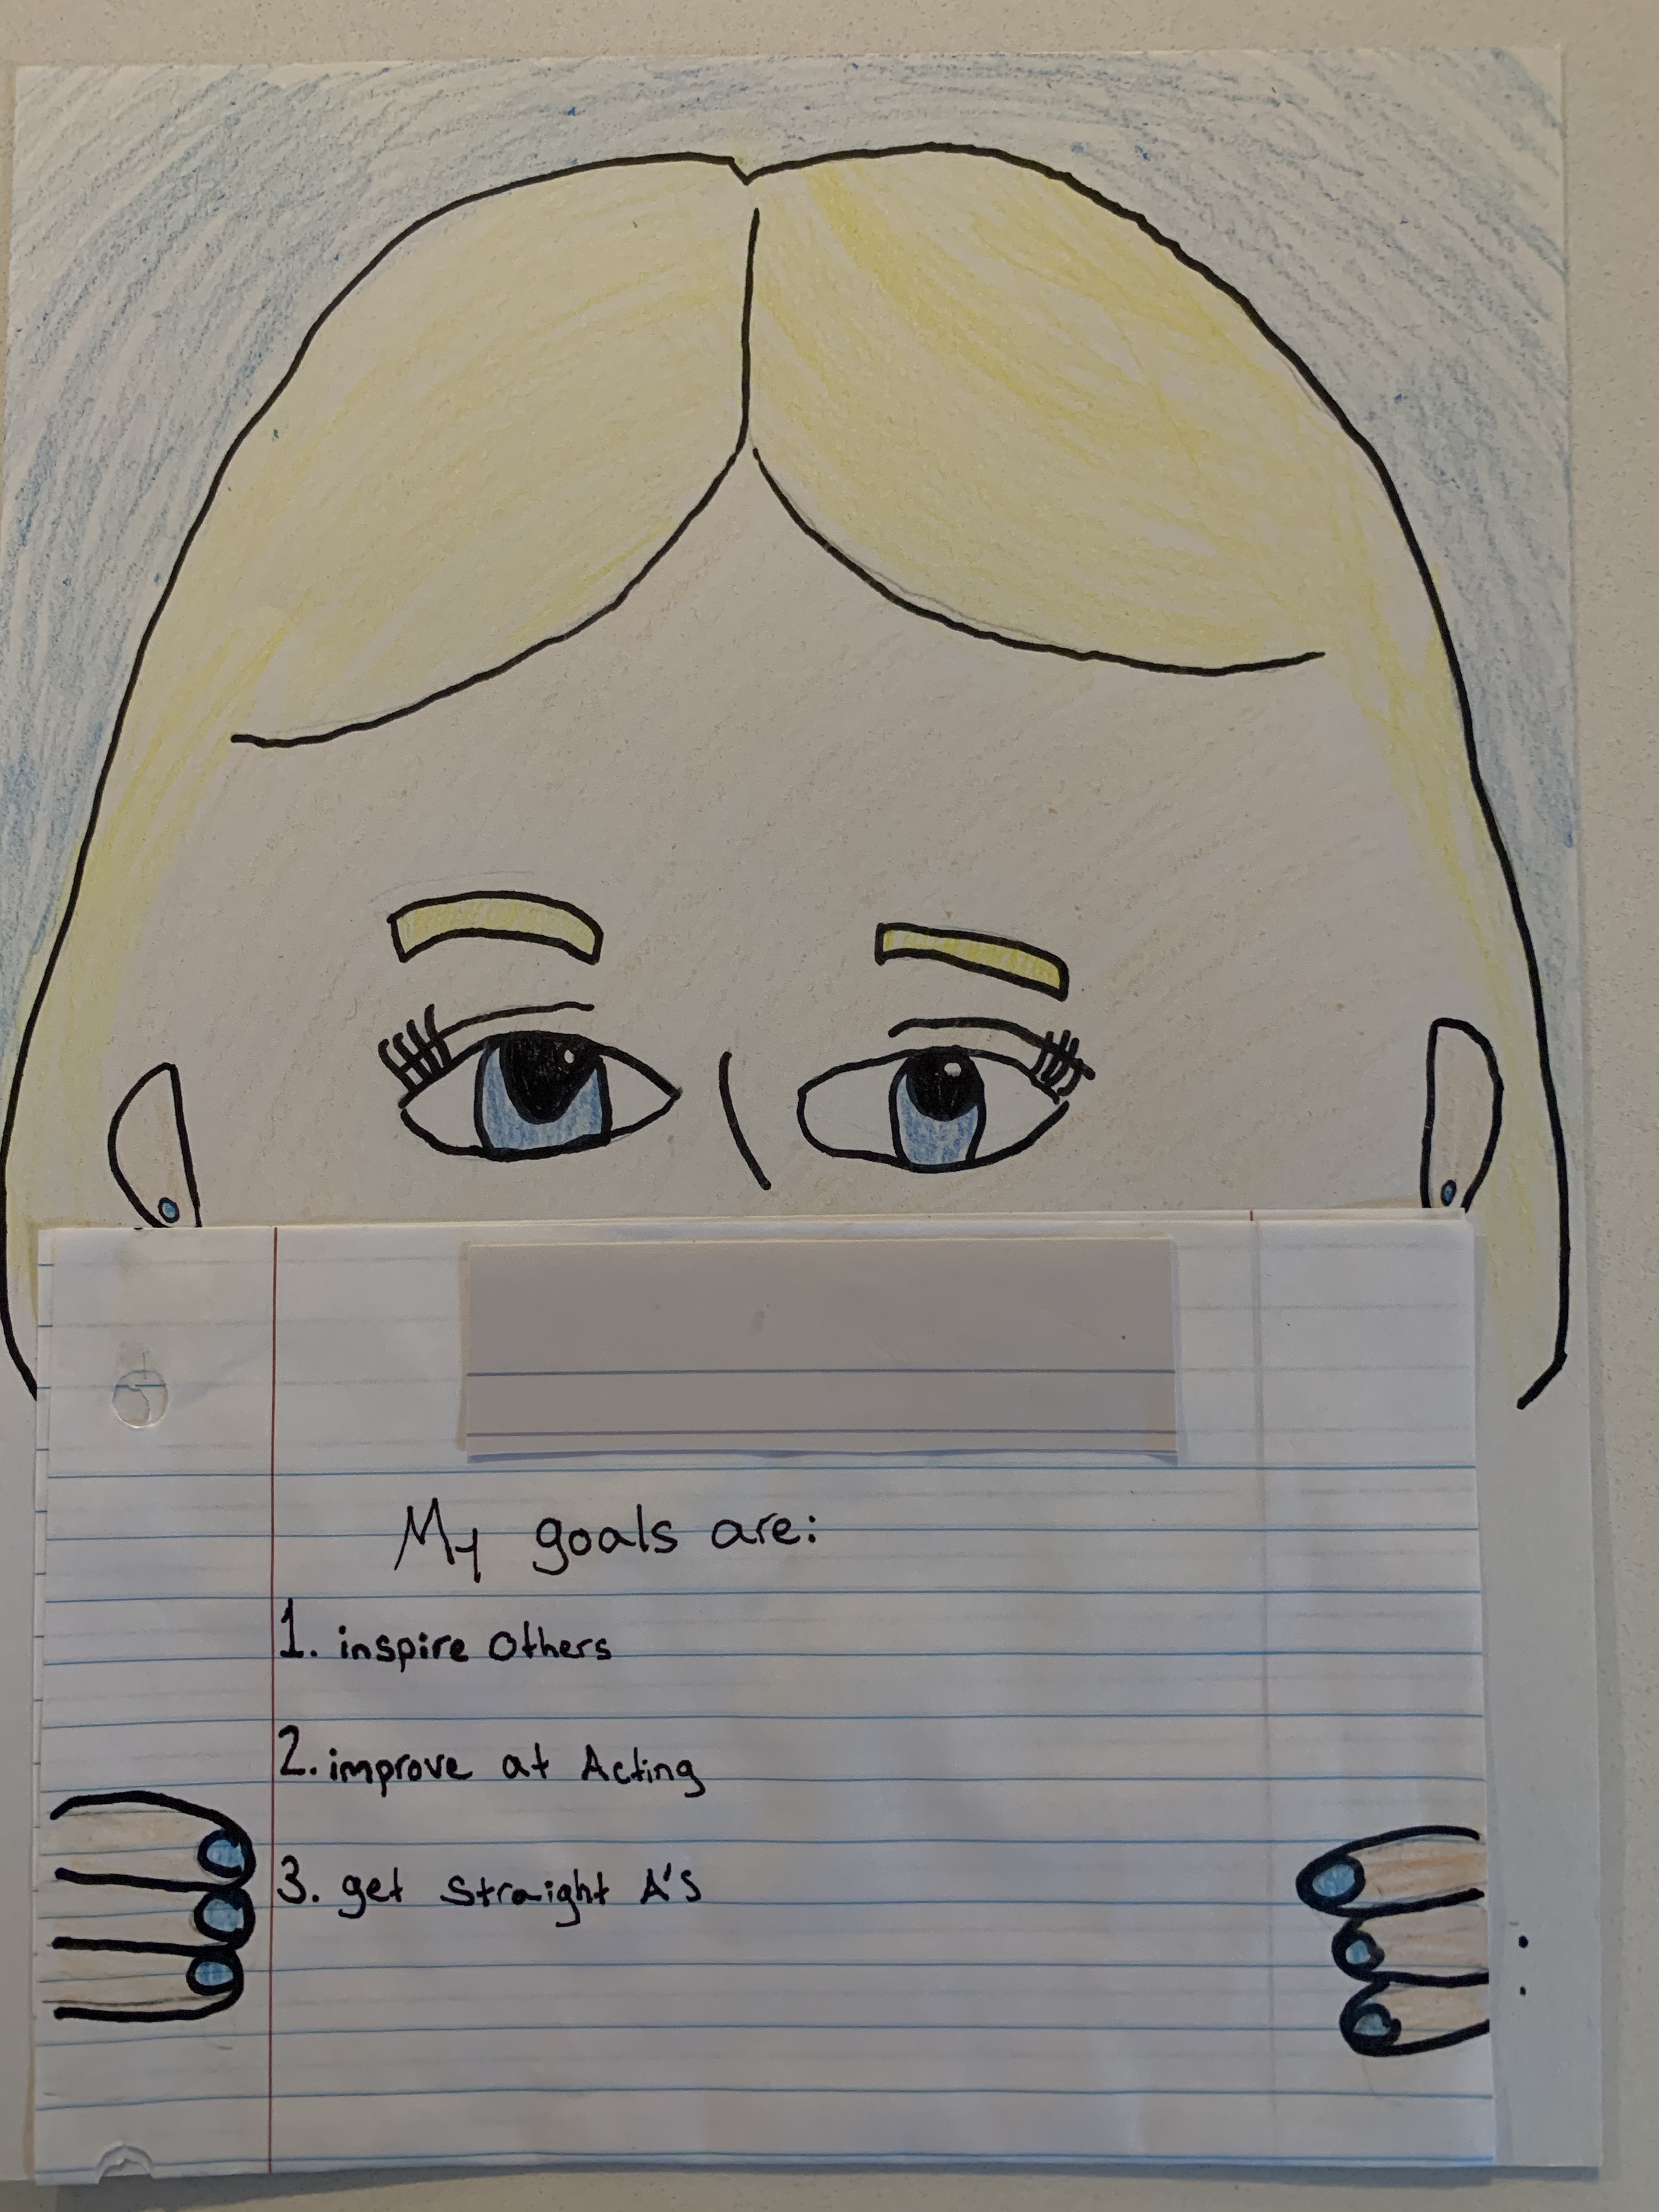 My goals are:
1. inspire Others
2. improve at Acting
3. get Straight A's